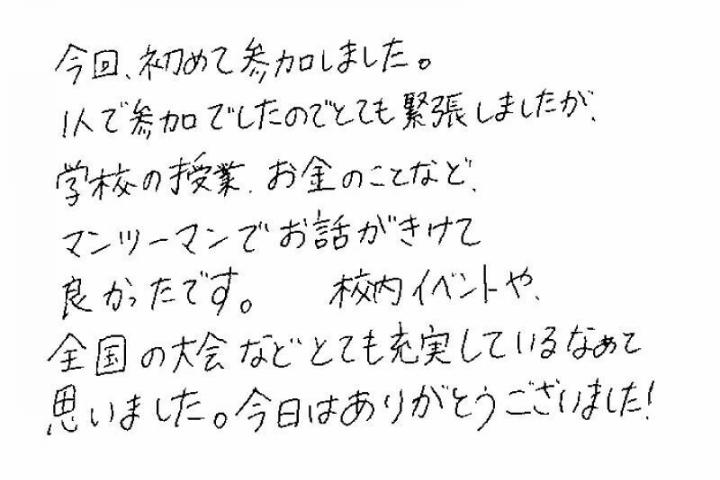 今回、初めて参加しました。
1人で参加でしたのでとても緊張しましたが、
学校の授業、お金のことなど、
マンツーマンでお話がきけて
良かったです。 校内イベントや、
全国の大会などとても充実しているなぁて
思いました。今日はありがとうございました!